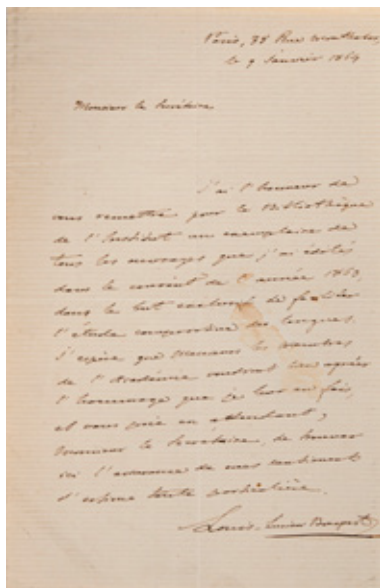 Paris, 38 Rue
le 9 Janvier 1864
Monsieur le Secrétaire
J'ai l'honneur de
vous remettre pour la Bibliothèque
de l'Institut un exemplaire de
tous les ouvrages que j'ai édités
dans le courant de l'année 1863,
dans le but exclusif de faciliter
l'étude comparative des langues.
J'espère que Messieurs les membres
de l'Académie voudront bien agréer
l'hommage que je leur en fais,
et vous prie en attendant,
Monsieur le Secrétaire, de trouver
ici l'assurance de mes sentiments
d'estime toute particulière.
Louis-Lucien Bonaparte